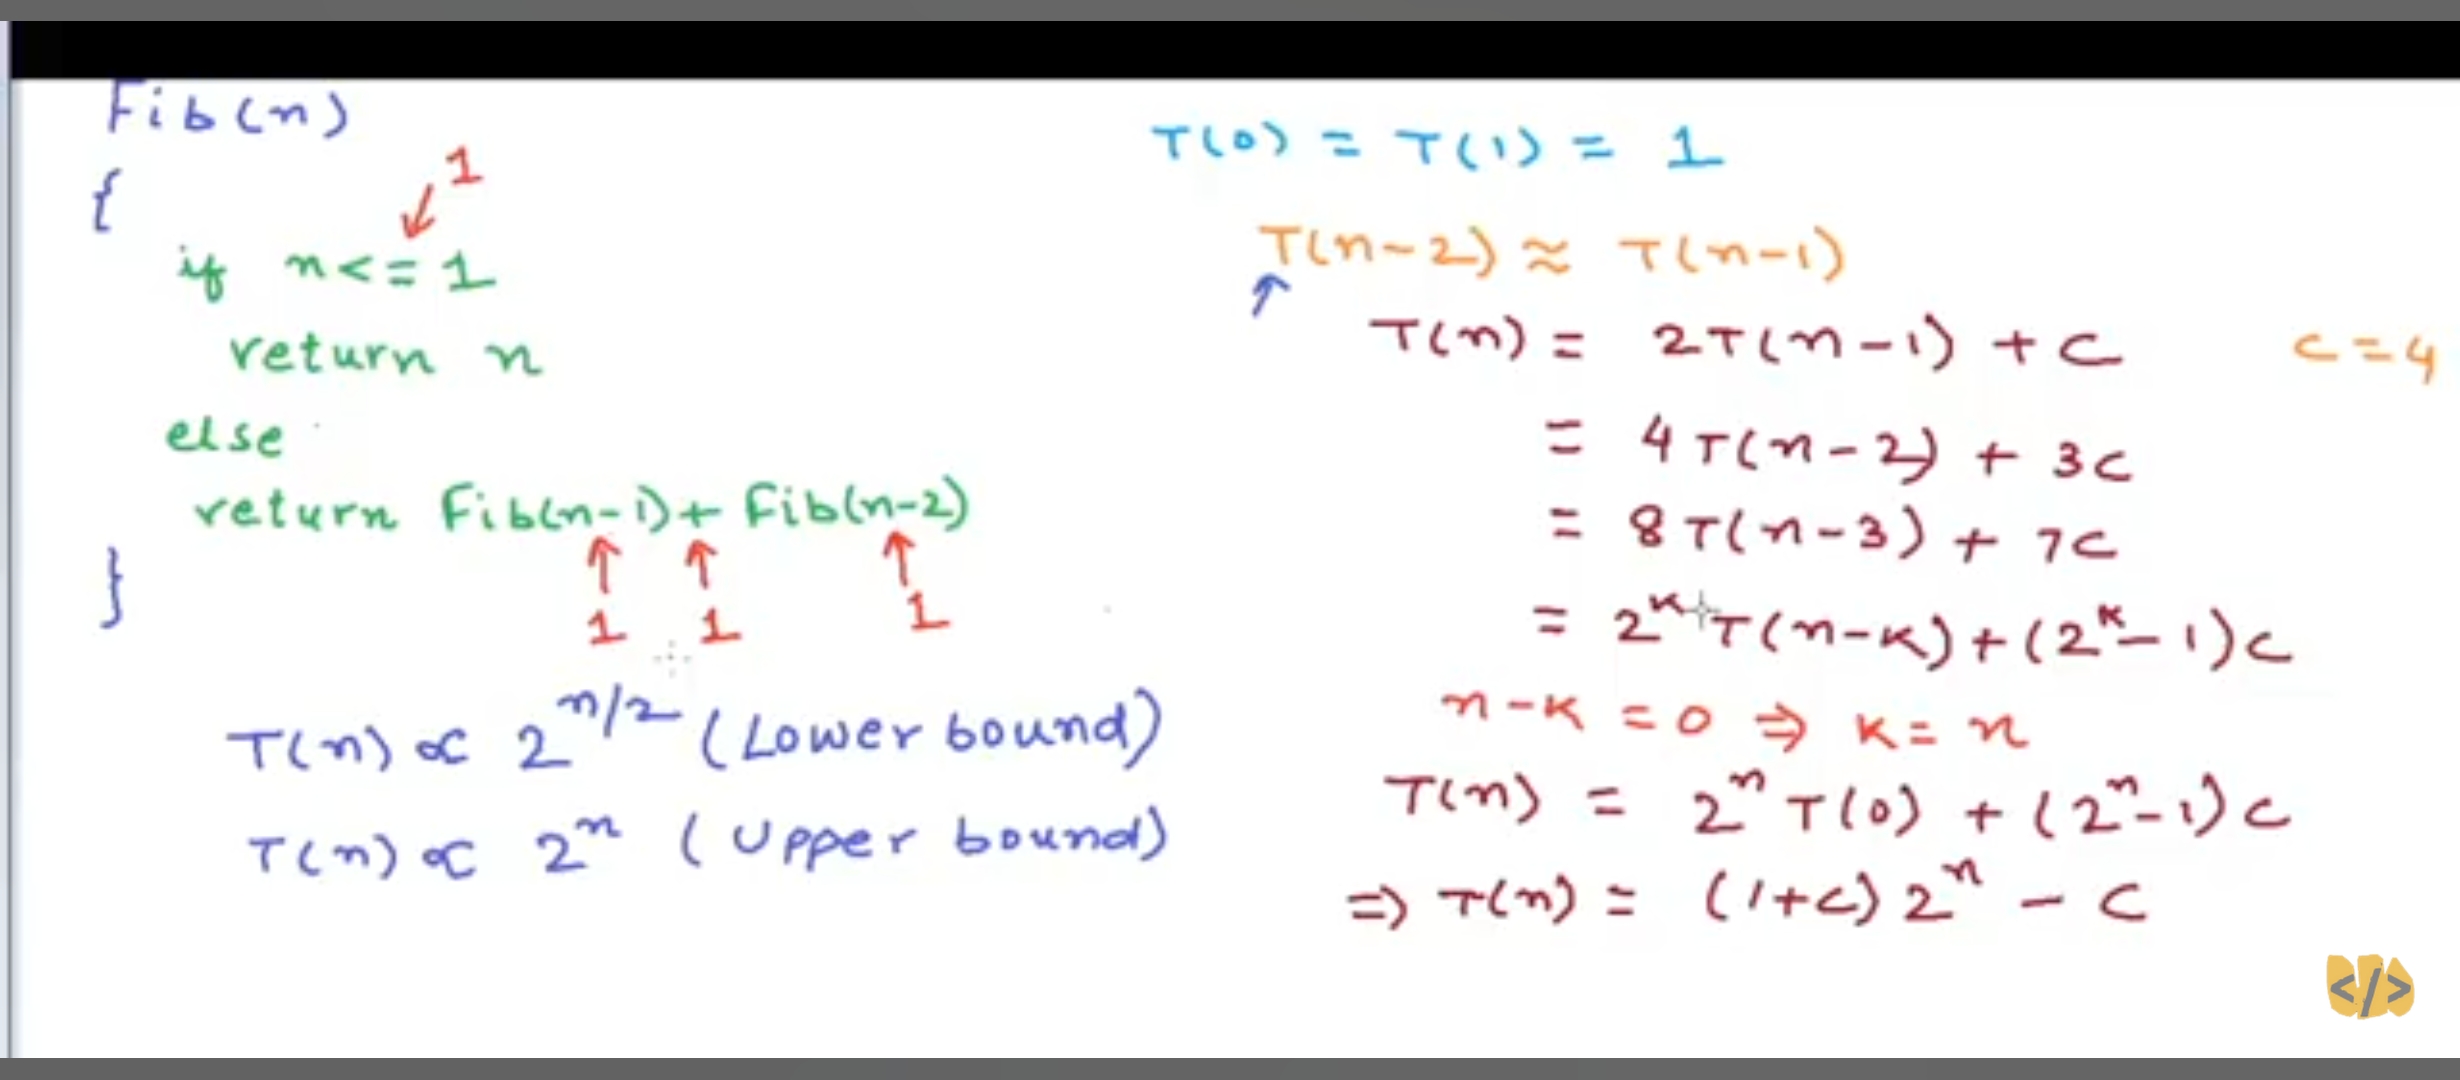 Fib(n)
{
1
if n<=1
return n
else
return Fib(n-1)+Fib(n-2)
1 1 1
}
T(n) ∝ 2^n/2 (Lower bound)
T(n) ∝ 2^n (Upper bound)
T(0) = T(1) = 1
T(n-2) ≈ T(n-1)
T(n) = 2T(n-1) + c c=4
= 4T(n-2) + 3c
= 8T(n-3) + 7c
= 2^k T(n-k) + (2^k-1)c
n-k = 0 ⇒ k = n
T(n) = 2^n T(0) + (2^n-1)c
⇒ T(n) = (1+c) 2^n - c
</>